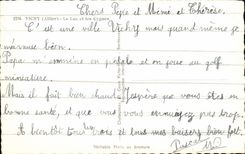 Chers Pépé et Mémé et Thérèse.
228. VICHY (Allier) - Le Lac et les Cygnes
C'est une ville Vichy mais quand même je
m'amuse bien.
Papa m'emmène en pédalo et on joue au golf
miniature.
Mais il fait bien chaud J'espère que vous êtes en
bonne santé, et que vous vous ennuyez pas trop.
A bientôt tous et tous mes baisers bien fort.
Pascal
Véritable Photo au Bromure